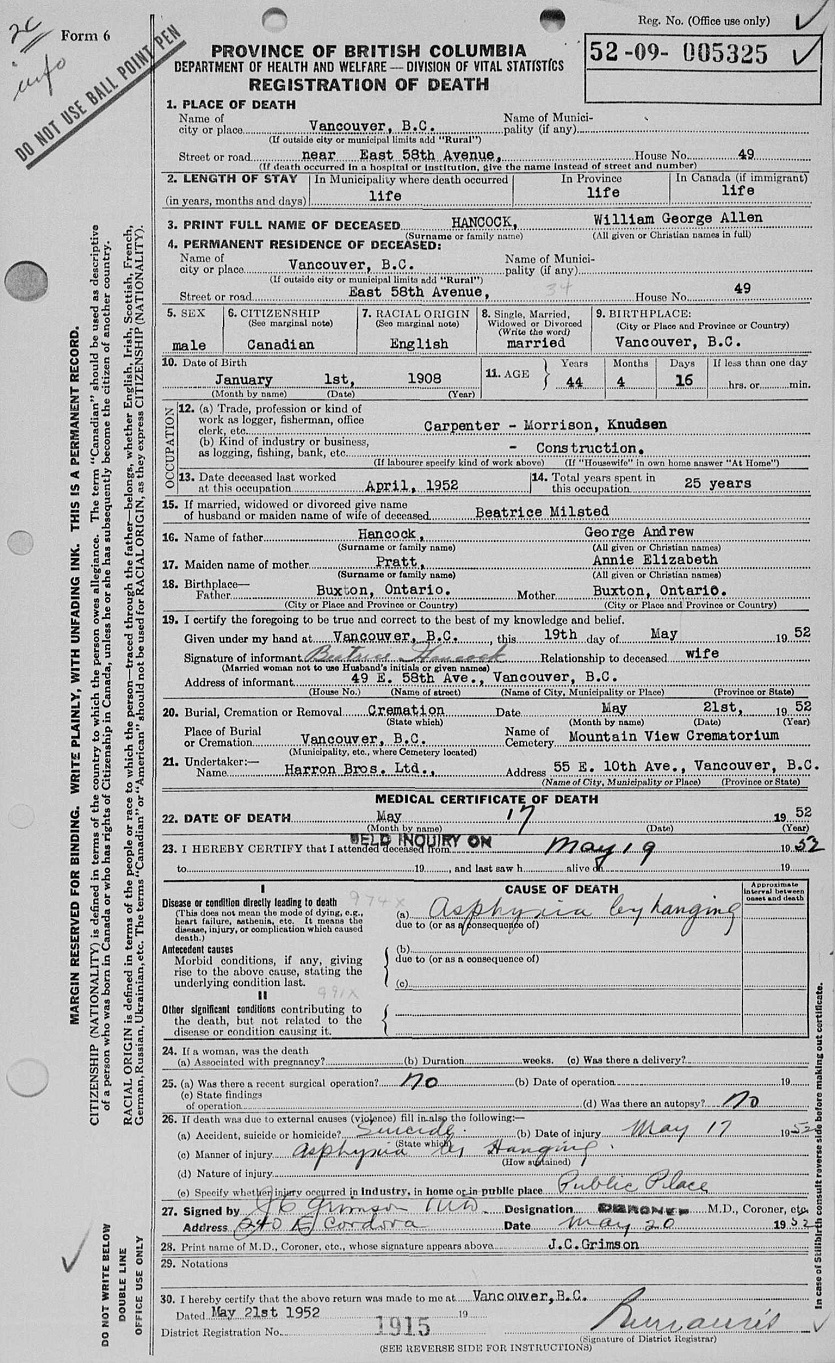 Form 6
info
DO NOT USE BALL POINT PEN
Reg. No. (Office use only)
52-09-005325
PROVINCE OF BRITISH COLUMBIA
DEPARTMENT OF HEALTH AND WELFARE — DIVISION OF VITAL STATISTICS
REGISTRATION OF DEATH
1. PLACE OF DEATH
Name of city or place Vancouver, B.C. Name of Municipality (if any)
(If outside city or municipal limits add "Rural")
Street or road near East 58th Avenue, House No. 49
(If death occurred in a hospital or institution, give the name instead of street and number)
2. LENGTH OF STAY In Municipality where death occurred In Province In Canada (if immigrant)
(in years, months and days) life life life
3. PRINT FULL NAME OF DECEASED HANCOCK, William George Allen
(Surname or family name) (All given or Christian names in full)
4. PERMANENT RESIDENCE OF DECEASED:
Name of city or place Vancouver, B.C. Name of Municipality (if any)
(If outside city or municipal limits add "Rural")
Street or road East 58th Avenue, 34 House No. 49
5. SEX 6. CITIZENSHIP (See marginal note) 7. RACIAL ORIGIN (See marginal note) 8. Single, Married, Widowed or Divorced (Write the word) 9. BIRTHPLACE: (City or Place and Province or Country)
male Canadian English married Vancouver, B.C.
10. Date of Birth 11. AGE Years Months Days If less than one day
January 1st, 1908 44 4 16 hrs. or min.
(Month by name) (Date) (Year)
OCCUPATION
12. (a) Trade, profession or kind of work as logger, fisherman, office clerk, etc. Carpenter - Morrison, Knudsen
(b) Kind of industry or business, as logging, fishing, bank, etc. - Construction.
(If labourer specify kind of work above) (If "Housewife" in own home answer "At Home")
13. Date deceased last worked at this occupation April, 1952 14. Total years spent in this occupation 25 years
15. If married, widowed or divorced give name of husband or maiden name of wife of deceased Beatrice Milsted
16. Name of father Hancock, George Andrew
(Surname or family name) (All given or Christian names)
17. Maiden name of mother Pratt, Annie Elizabeth
(Surname or family name) (All given or Christian names)
18. Birthplace— Father Buxton, Ontario. Mother Buxton, Ontario.
(City or Place and Province or Country) (City or Place and Province or Country)
19. I certify the foregoing to be true and correct to the best of my knowledge and belief.
Given under my hand at Vancouver, B.C. , this 19th day of May 1952
Signature of informant Beatrice Hancock Relationship to deceased wife
(Married woman not to use Husband's initials or given names)
Address of informant 49 E. 58th Ave., Vancouver, B.C.
(House No.) (Name of street) (Name of City, Municipality or Place) (Province or State)
20. Burial, Cremation or Removal Cremation Date May 21st, 1952
(State which) (Month by name) (Date) (Year)
Place of Burial or Cremation Vancouver, B.C. Name of Cemetery Mountain View Crematorium
(Municipality, etc., where Cemetery located)
21. Undertaker:— Name Harron Bros. Ltd., Address 55 E. 10th Ave., Vancouver, B.C.
(Name of City, Municipality or Place) (Province or State)
MEDICAL CERTIFICATE OF DEATH
22. DATE OF DEATH May 17 1952
(Month by name) (Date) (Year)
HELD INQUIRY ON
23. I HEREBY CERTIFY that I attended deceased from May 19 1952
to 19 , and last saw h alive on 19
I CAUSE OF DEATH Approximate interval between onset and death
Disease or condition directly leading to death 974x (a) Asphyxia by hanging
(This does not mean the mode of dying, e.g., heart failure, asthenia, etc. It means the disease, injury, or complication which caused death.) due to (or as a consequence of)
Antecedent causes (b)
Morbid conditions, if any, giving rise to the above cause, stating the underlying condition last. due to (or as a consequence of)
(c)
II 991x
Other significant conditions contributing to the death, but not related to the disease or condition causing it.
24. If a woman, was the death
(a) Associated with pregnancy? (b) Duration weeks. (c) Was there a delivery?
25. (a) Was there a recent surgical operation? No (b) Date of operation 19
(c) State findings of operation (d) Was there an autopsy? No
26. If death was due to external causes (violence) fill in also the following:—
(a) Accident, suicide or homicide? Suicide. (b) Date of injury May 17 1952
(State which)
(c) Manner of injury Asphyxia by Hanging.
(How sustained)
(d) Nature of injury
(e) Specify whether injury occurred in industry, in home or in public place Public Place
27. Signed by J C Grimson M.D. Designation CORONER M.D., Coroner, etc.
Address 240 E Cordova Date May 20 1952
28. Print name of M.D., Coroner, etc., whose signature appears above J.C.Grimson
29. Notations
30. I hereby certify that the above return was made to me at Vancouver,B.C.
Dated May 21st 1952 19
District Registration No. 1915
(Signature of District Registrar)
(SEE REVERSE SIDE FOR INSTRUCTIONS)
MARGIN RESERVED FOR BINDING. WRITE PLAINLY, WITH UNFADING INK. THIS IS A PERMANENT RECORD.
CITIZENSHIP (NATIONALITY) is defined in terms of the country to which the person owes allegiance. The term "Canadian" should be used as descriptive
of a person who was born in Canada or who has rights of Citizenship in Canada, unless he or she has subsequently become the citizen of another country.
RACIAL ORIGIN is defined in terms of the people or race to which the person—traced through the father—belongs, whether English, Irish, Scottish, French,
German, Russian, Ukrainian, etc. The terms "Canadian" or "American" should not be used for RACIAL ORIGIN, as they express CITIZENSHIP (NATIONALITY).
DO NOT WRITE BELOW
DOUBLE LINE
OFFICE USE ONLY
In case of Stillbirth consult reverse side before making out certificate.